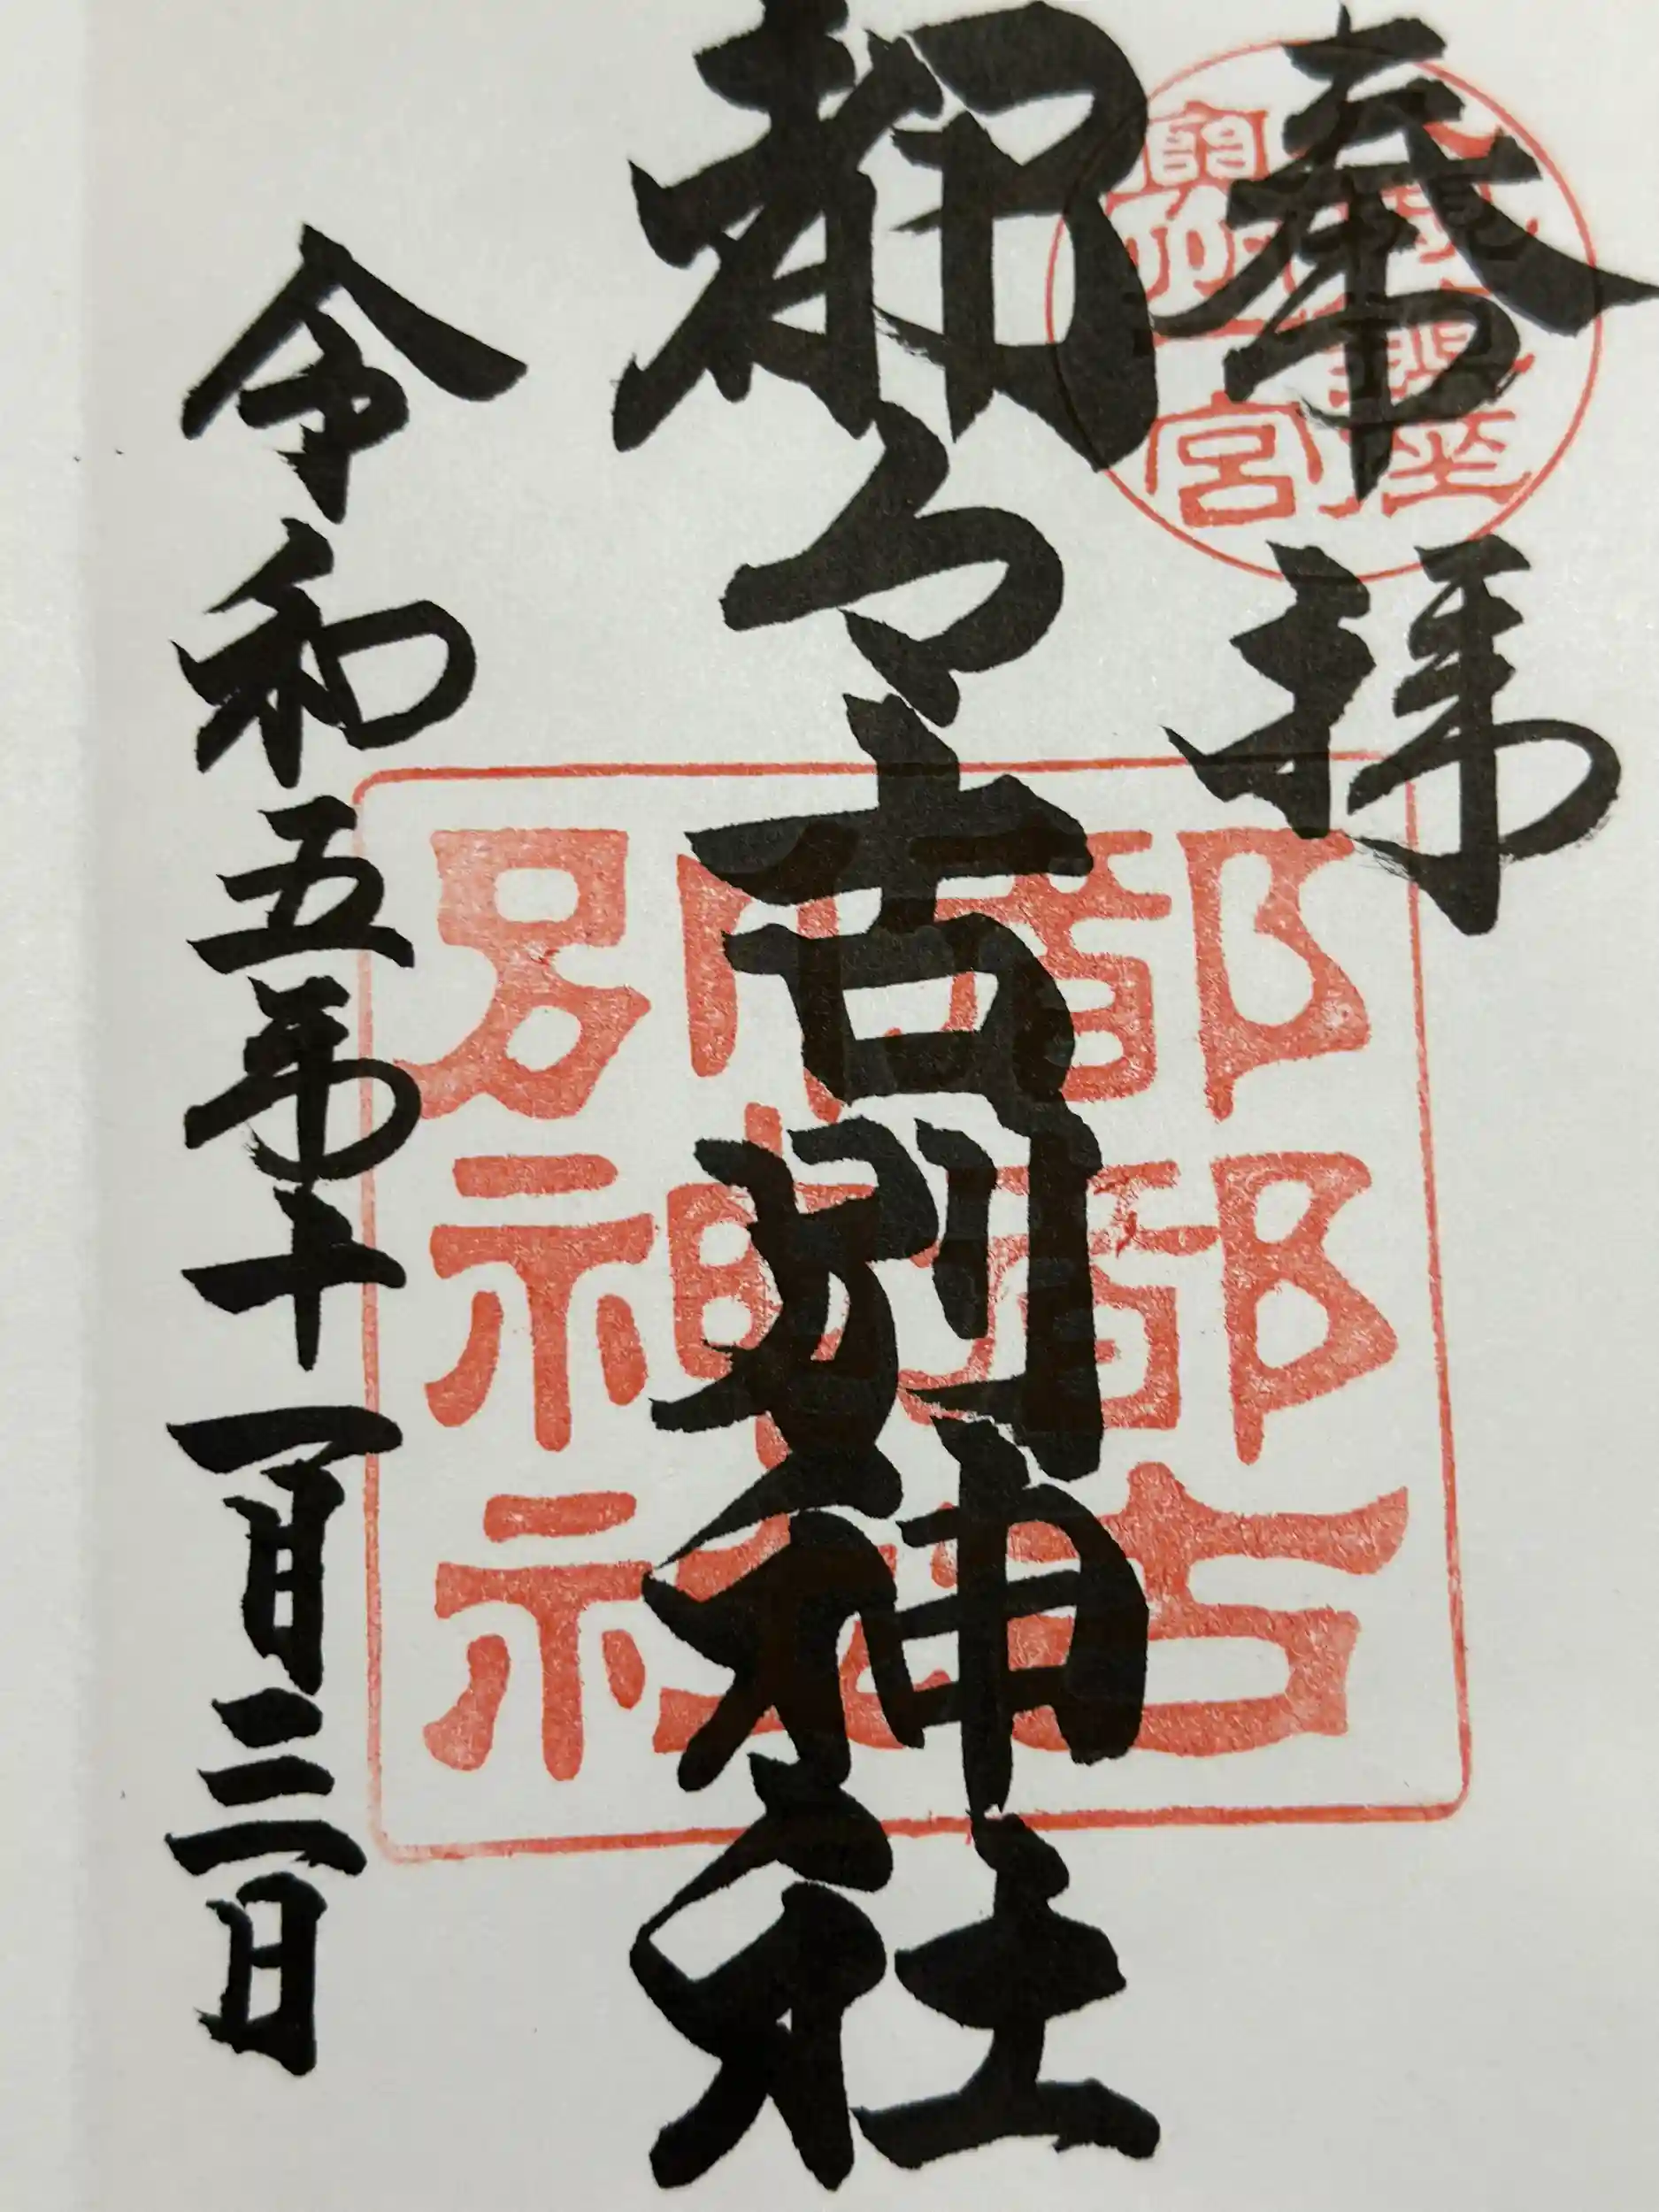 奉拝
奥州一宮
都々古別神社
都都古
別神社
令和五年十一月三日